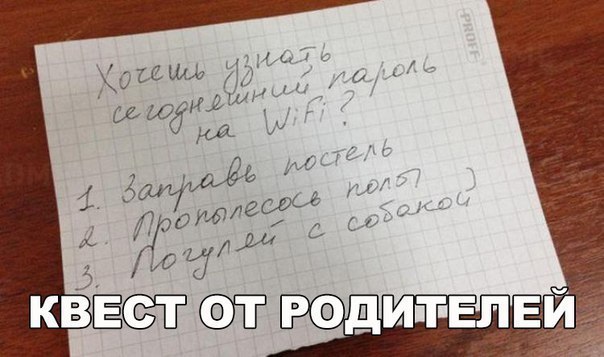 PROFF
Хочешь узнать
сегодняшний пароль
на WiFi?
1. Заправь постель
2. Пропылесось полы
3. Погуляй с собакой)
КВЕСТ ОТ РОДИТЕЛЕЙ